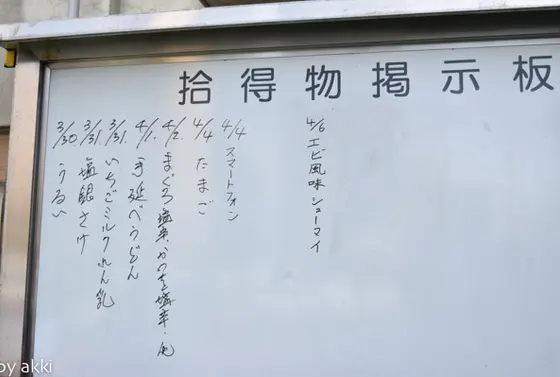 拾得物掲示板
3/30 うるい
3/31 塩銀さけ
3/31 いちごミルクれん乳
4/1 手延べうどん
4/2 まぐろ塩辛、かつを塩辛、
4/4 たまご
4/4 スマートフォン
4/6 エビ風味シューマイ
by akki